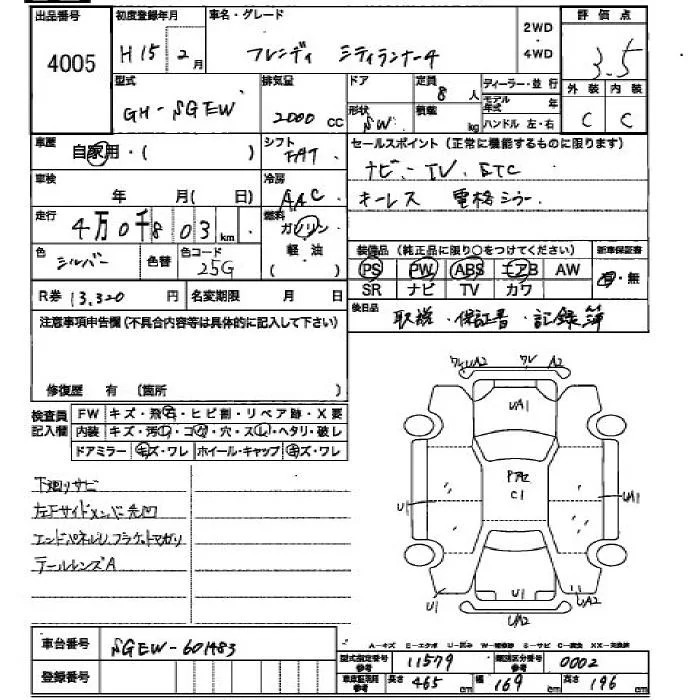 出品番号 初度登録年月 車名・グレード 評価点
4005 H15年2月 フレンディ シティランナー4 2WD・4WD 3.5
型式 排気量 ドア 定員 8人 ディーラー・並行 外装 内装
GH-SGEW 2000cc 形状 SW 積載 kg モデル年式 年 ハンドル 左・右 C C
車歴 自家用・( ) シフト FAT セールスポイント(正常に機能するものに限ります)
ナビ・TV ETC
車検 年 月(日) 冷房 AAC キーレス 電格ミラー
走行 4万0千803km 燃料 ガソリン 軽油 ( )
色 シルバー 色替 色コード 25G 装備品(純正品に限り○をつけてください) 新車保証書
PS PW ABS エアB AW 有・無
R券 13.320円 名変期限 月 日 SR ナビ TV カワ
注意事項申告欄(不具合内容等は具体的に記入して下さい) 後日品 取説・保証書・記録簿
修復歴 有 (箇所 )
検査員記入欄 FW キズ・飛石・ヒビ割・リペア跡・X要
内装 キズ・汚レ・コゲ・穴・スレ・ヘタリ・破レ
ドアミラー キズ・ワレ ホイール・キャップ キズ・ワレ
下廻りサビ
左Fサイドメンバー先凹
エンドパネルU,ブラケットマガリ
テールレンズA
ワレUA2 ワレ A2
UA1
PAZ
C1
U1 UA1
U1 U1 UA2
UA2
車台番号 SGEW-601483
登録番号
A-キズ E-エクボ U-凹み W-補修跡 S-サビ C-腐食 XX-交換済
型式指定番号 参考 11579 類別区分番号 参考 0002
車庫証明用 参考 長さ 465cm 幅 169cm 高さ 196cm